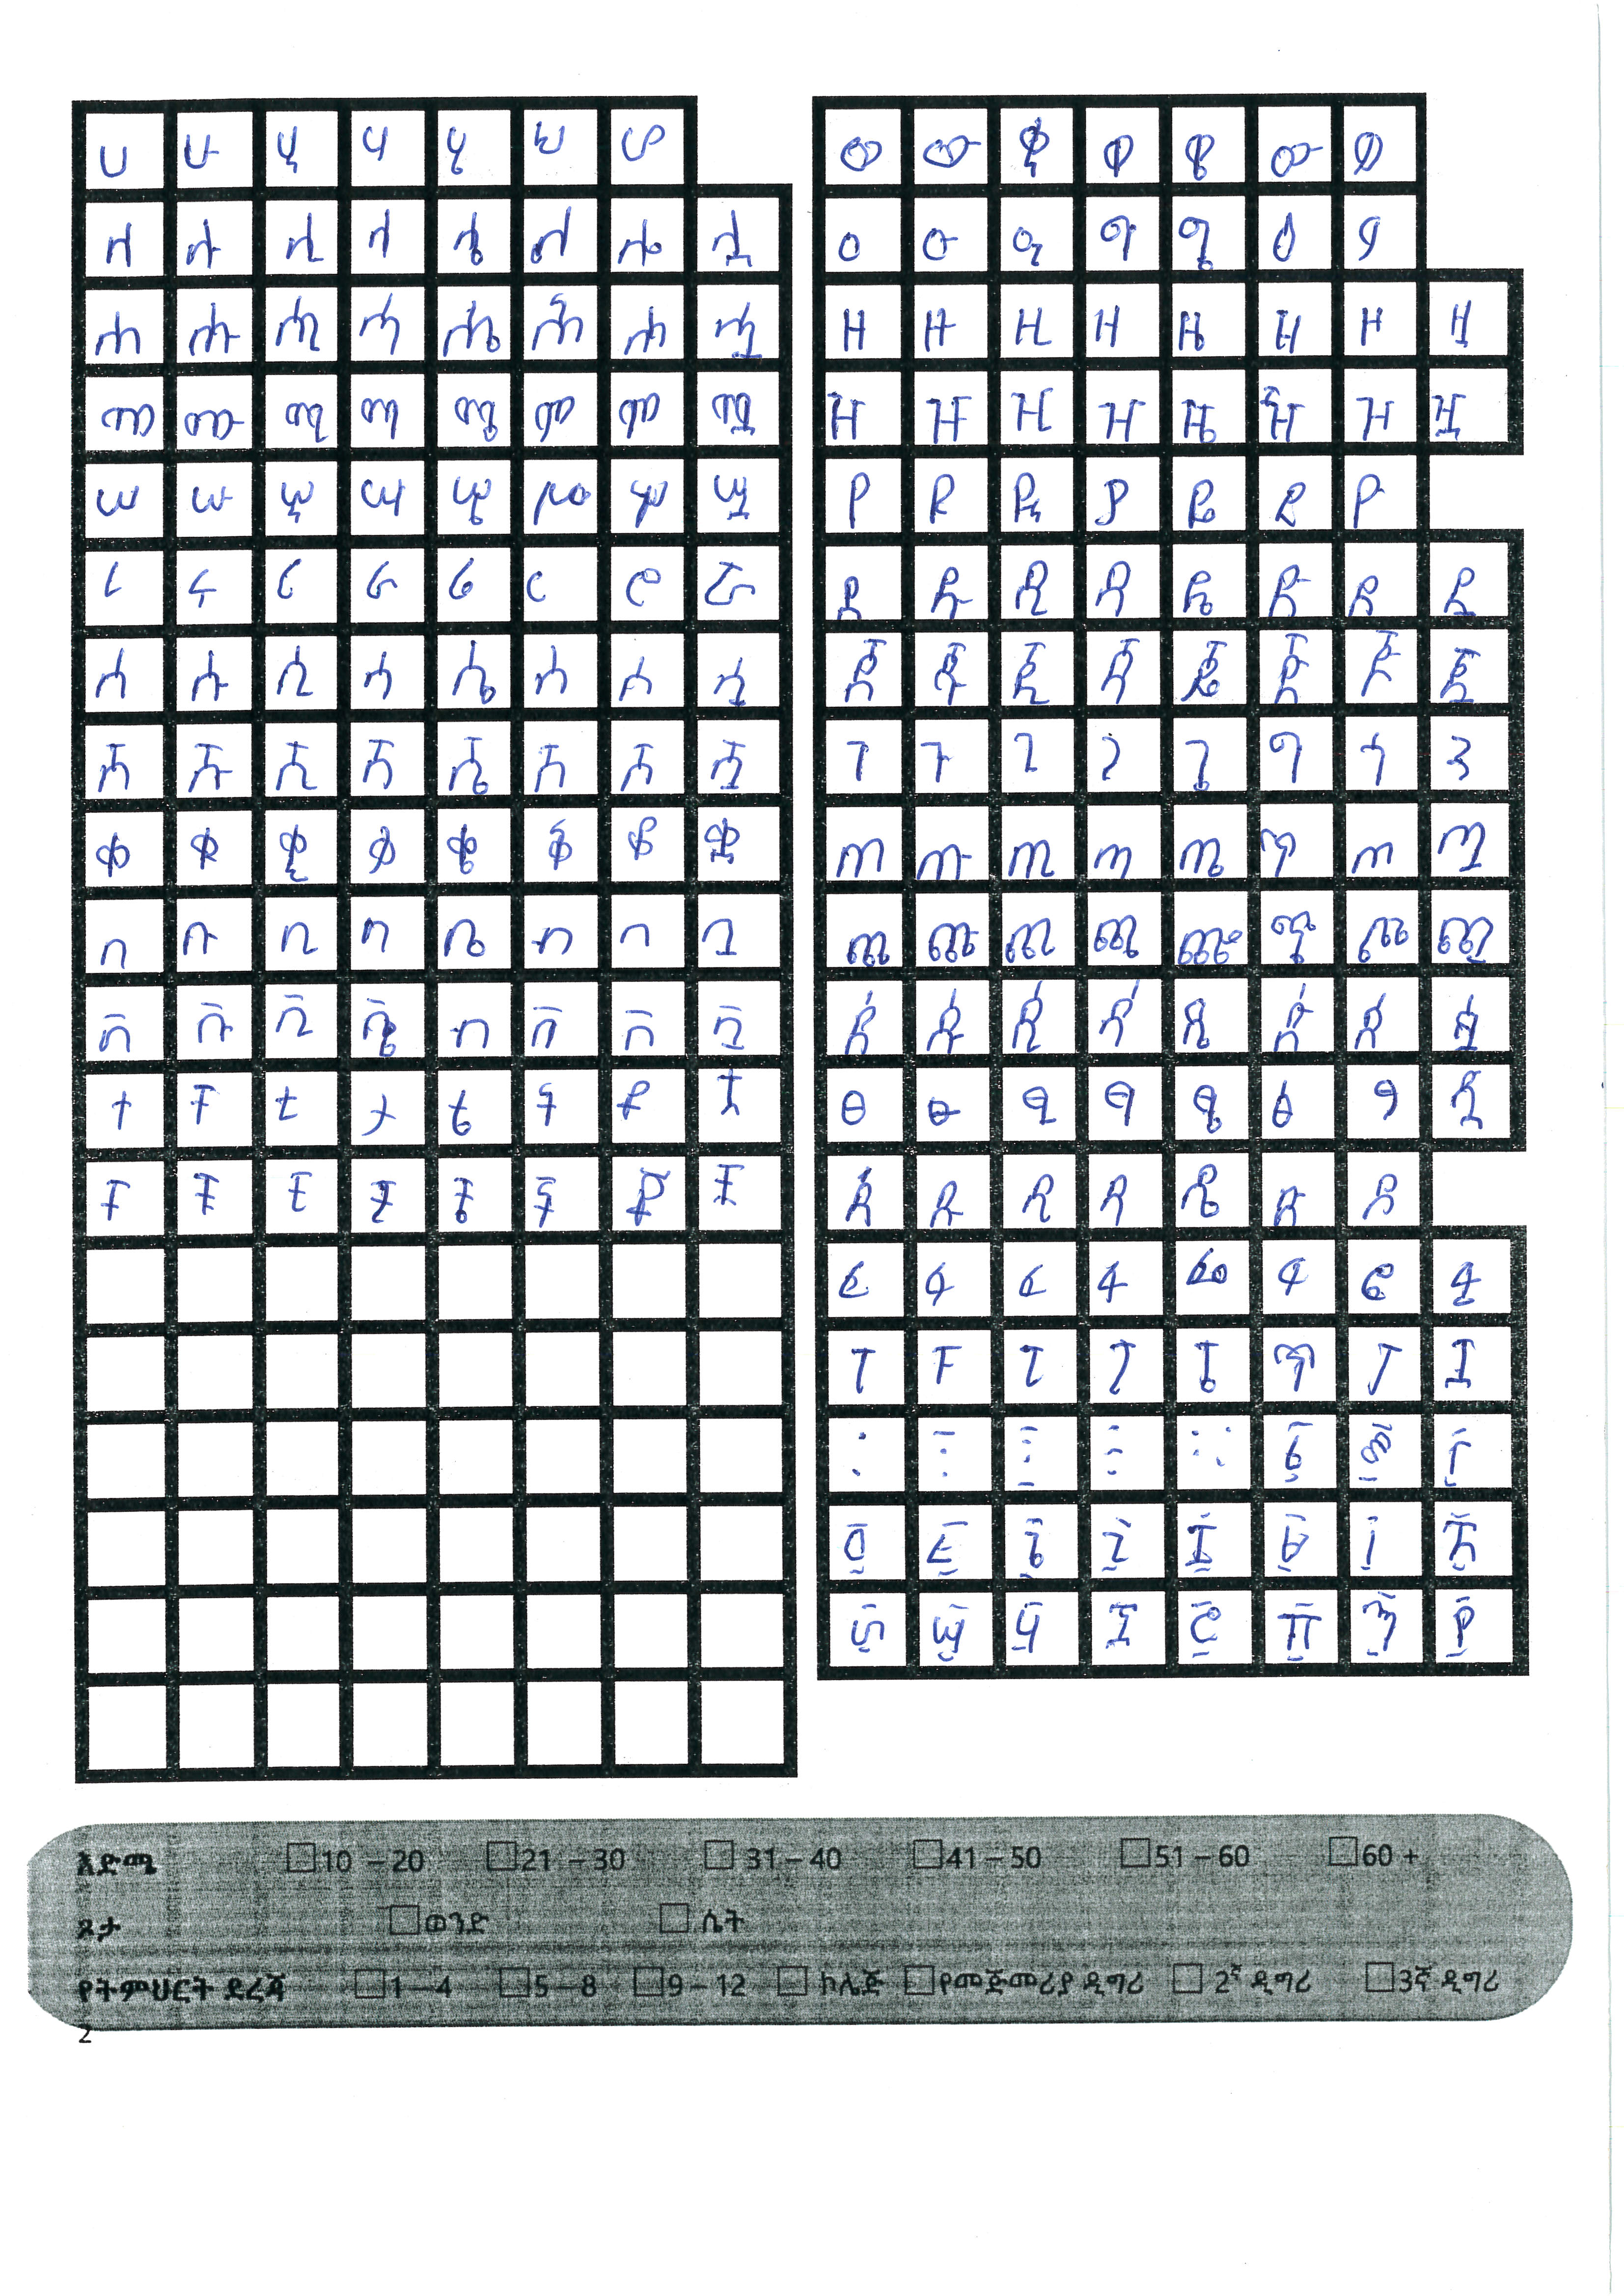 ሀ ሁ ሂ ሃ ሄ ህ ሆ
ለ ሉ ሊ ላ ሌ ል ሎ ሏ
ሐ ሑ ሒ ሓ ሔ ሕ ሖ ሗ
መ ሙ ሚ ማ ሜ ም ሞ ሟ
ሠ ሡ ሢ ሣ ሤ ሥ ሦ ሧ
ረ ሩ ሪ ራ ሬ ር ሮ ሯ
ሰ ሱ ሲ ሳ ሴ ስ ሶ ሷ
ሸ ሹ ሺ ሻ ሼ ሽ ሾ ሿ
ቀ ቁ ቂ ቃ ቄ ቅ ቆ ቋ
በ ቡ ቢ ባ ቤ ብ ቦ ቧ
ቨ ቩ ቪ ቬ ቭ ቮ ቯ
ተ ቱ ቲ ታ ቴ ት ቶ ቷ
ቸ ቹ ቺ ቻ ቼ ች ቾ ቿ
ወ ዉ ዊ ዋ ዌ ው ዎ
ዐ ዑ ዒ ዓ ዔ ዕ ዖ
ዘ ዙ ዚ ዛ ዜ ዝ ዞ ዟ
ዠ ዡ ዢ ዣ ዤ ዥ ዦ ዧ
የ ዩ ዪ ያ ዬ ይ ዮ
ደ ዱ ዲ ዳ ዴ ድ ዶ ዷ
ጀ ጁ ጂ ጃ ጄ ጅ ጆ ጇ
ገ ጉ ጊ ጋ ጌ ግ ጎ
ጠ ጡ ጢ ጣ ጤ ጥ ጦ ጧ
ጨ ጩ ጪ ጫ ጬ ጭ ጮ ጯ
ጰ ጱ ጲ ጳ ጴ ጵ ጶ ጷ
ፀ ፁ ፂ ፃ ፄ ፅ ፆ ጿ
ጸ ጹ ጺ ጻ ጼ ጽ ጾ
ፈ ፉ ፊ ፋ ፌ ፍ ፎ ፏ
ፐ ፑ ፒ ፓ ፔ ፕ ፖ ፗ
፩ ፪ ፫
፬ ፭ ፮ ፯ ፰ ፱ ፲ ፳
፴ ፵ ፶ ፷ ፸ ፹ ፺ ፻
እድሜ 10 – 20 21 – 30 31 – 40 41 – 50 51 – 60 60 +
ጾታ ወንድ ሴት
የትምህርት ደረጃ 1 – 4 5 – 8 9 – 12 ኮሌጅ የመጀመሪያ ዲግሪ 2ኛ ዲግሪ 3ኛ ዲግሪ
2